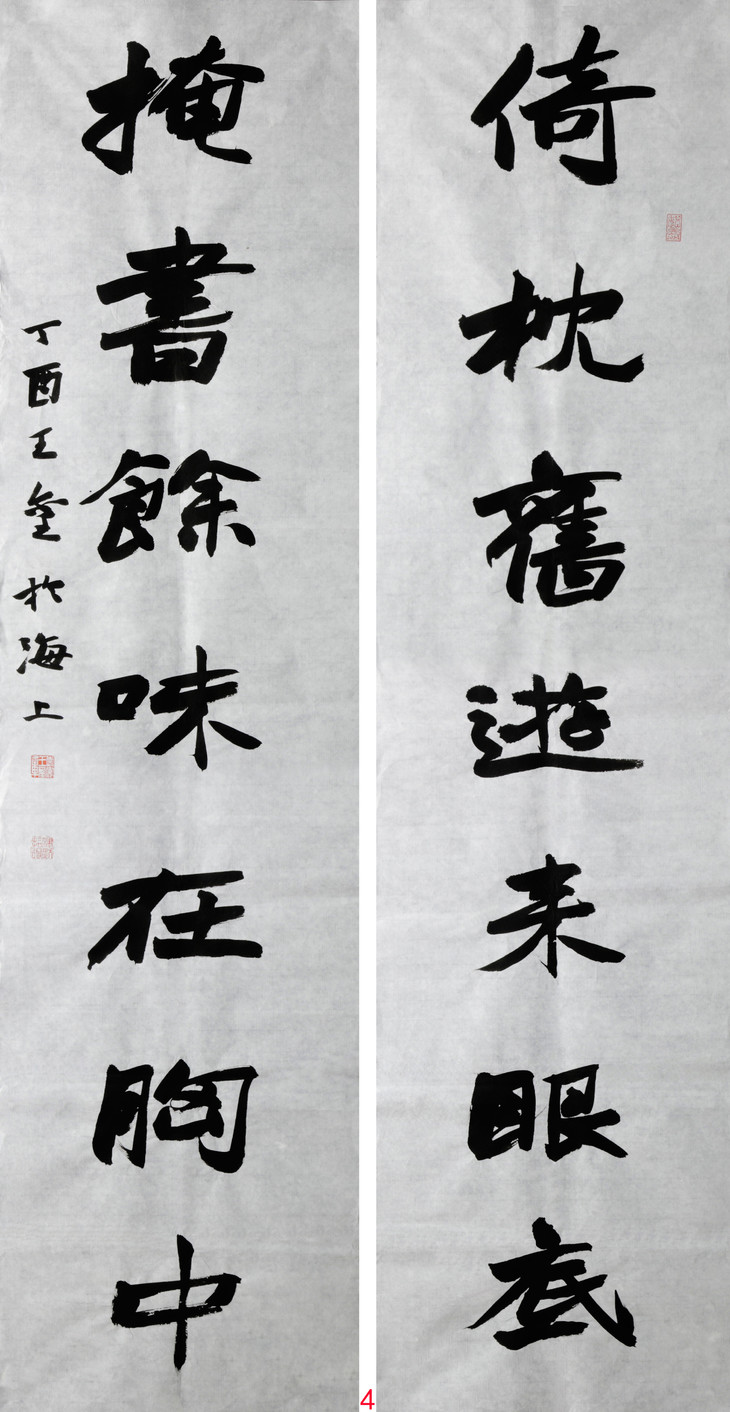 倚枕舊遊来眼底
掩書餘味在胸中
丁酉王奎於海上
4